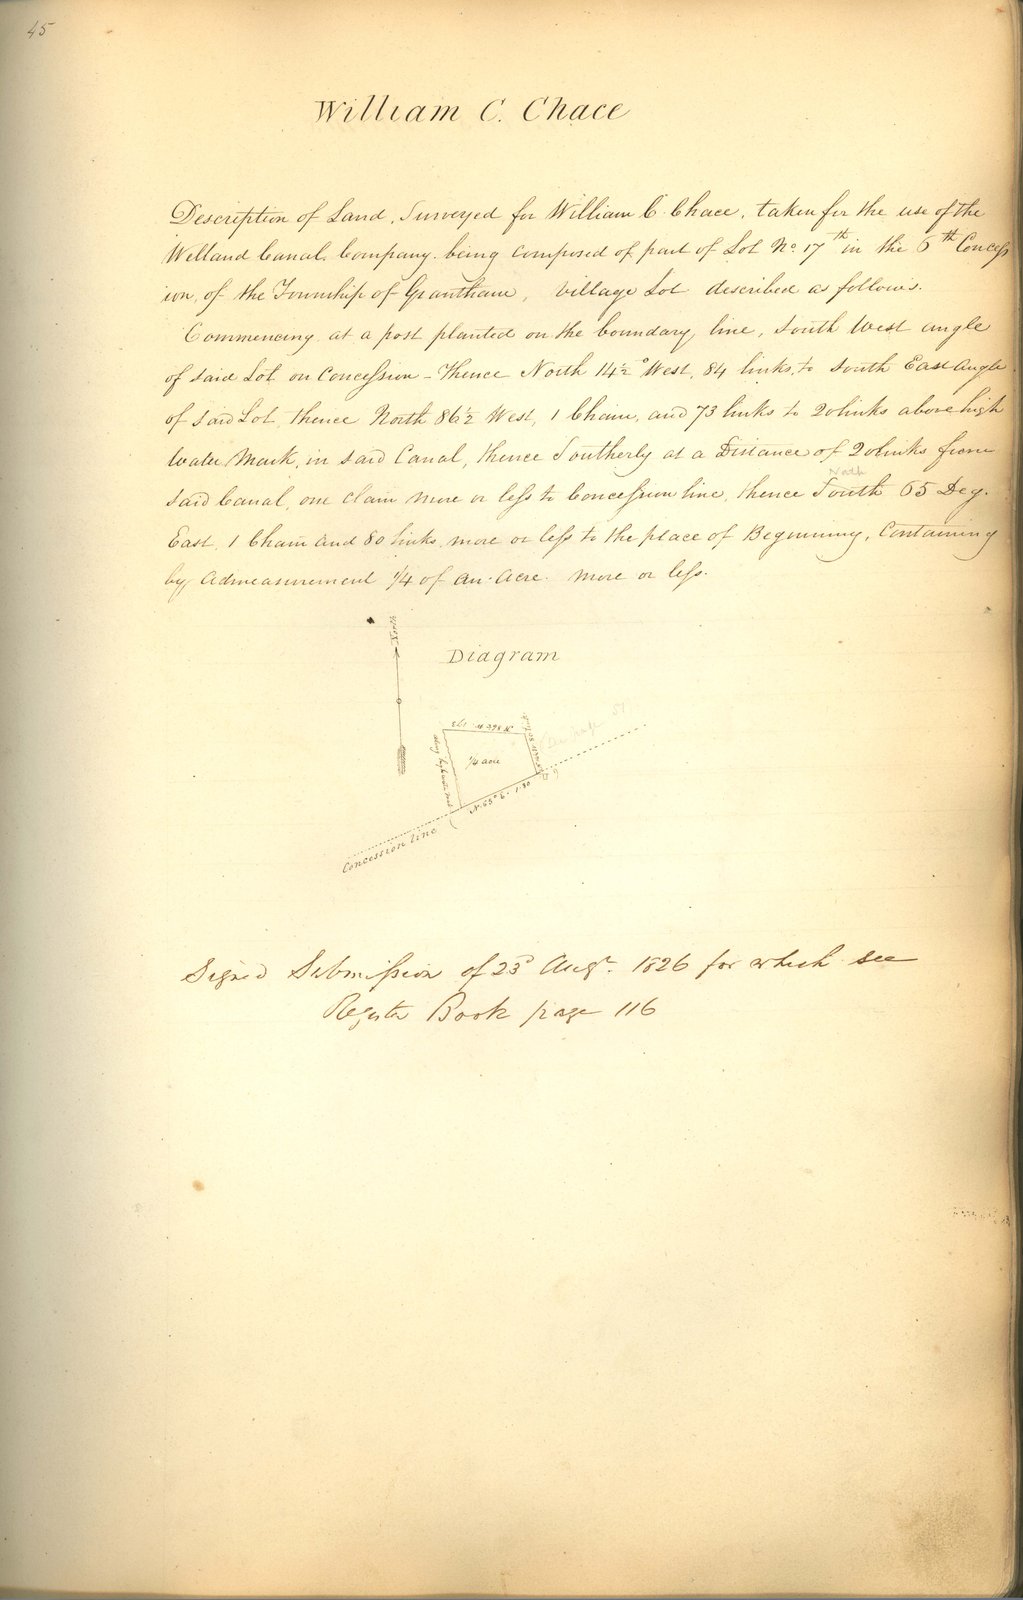 45
William C. Chace
Description of Land, Surveyed for William C. Chace, taken for the use of the
Welland Canal Company. being composed of part of Lot No. 17th in the 6th Concess
ion, of the Township of Grantham, Village Lot described as follows.
Commencing at a post planted on the boundary line, South West angle
of said Lot on Concession - Thence North 14½° West, 84 links, to South East Angle
of said Lot, thence North 86½ West, 1 Chain, and 73 links to 20 links above high
Water Mark, in said Canal, thence Southerly at a Distance of 20 links from
North
said Canal, one chain more or less to Concession line, thence South 65 Deg.
East, 1 Chain and 80 links more or less to the place of Beginning, Containing
by Admeasurement 1/4 of an Acre. more or less.
North
Diagram
N 86½ W. 1.73
1/4 acre
N. 65° E. 1.80
Concession line
Signed Submission of 23d Augt. 1826 for which see
Register Book page 116